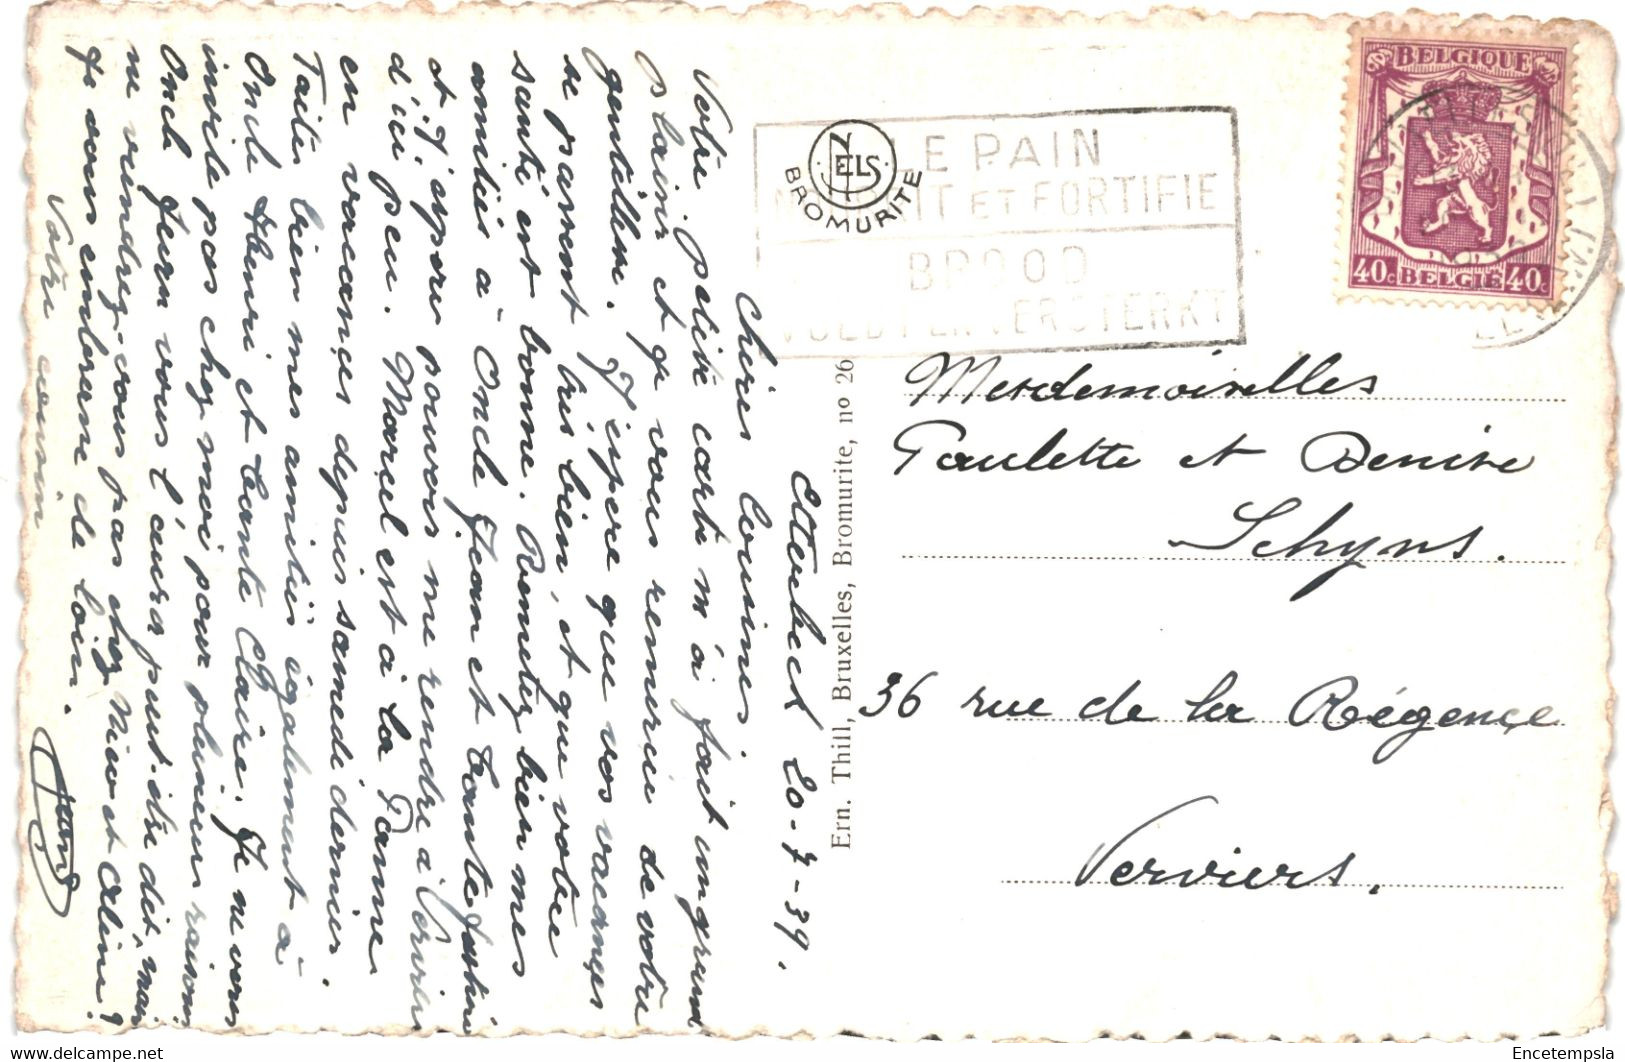 Etterbeek 20-7-39.
Chères Cousines.
Votre petite carte m'a fait un grand
plaisir et je vous remercie de votre
gentillesse. J'espère que vos vacances
se passent très bien, et que votre
santé est bonne. Remettez bien mes
amitiés à Oncle Jean et tante
et j'espère pouvoir me rendre à Vervier
d'ici peu. Marcel est à la Panne
en vacances depuis samedi dernier.
Faites bien mes amitiés également à
Oncle Henri et tante Claire. Je ne vous
invite pas chez moi pour plusieurs raisons
Oncle Jean vous l'aura peut-être dit, mais
ne viendrez-vous pas chez et Aline?
Je vous embrasse de loin.
Votre cousin
BELGIQUE
40c BELGIE 40c
LE PAIN
NOURRIT ET FORTIFIE
BROOD
VOEDT EN VERSTERKT
NELS
BROMURITE
Ern. Thill, Bruxelles, Bromurite, no 26
Mesdemoiselles
Paulette et Denise
Schyns.
36 rue de la Régence
Verviers.
www.delcampe.net
Encetempsla